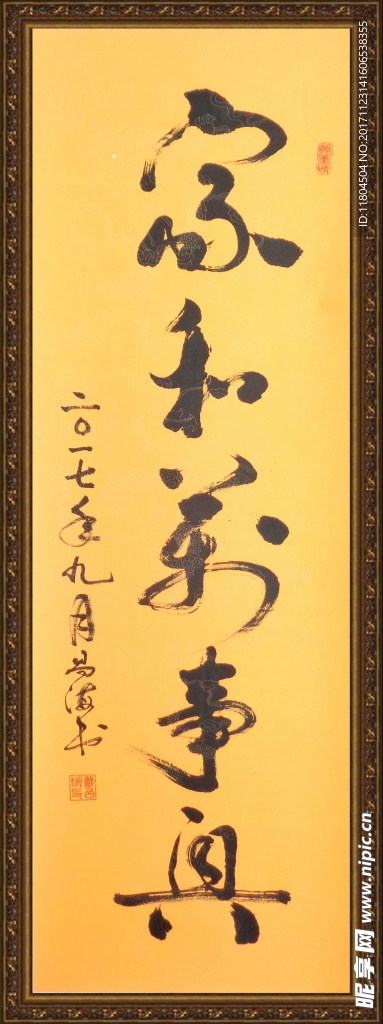 家和萬事興
二〇一七年九月昌海书
ID:11804504 NO:20171123141606538355
昵享网 www.nipic.cn